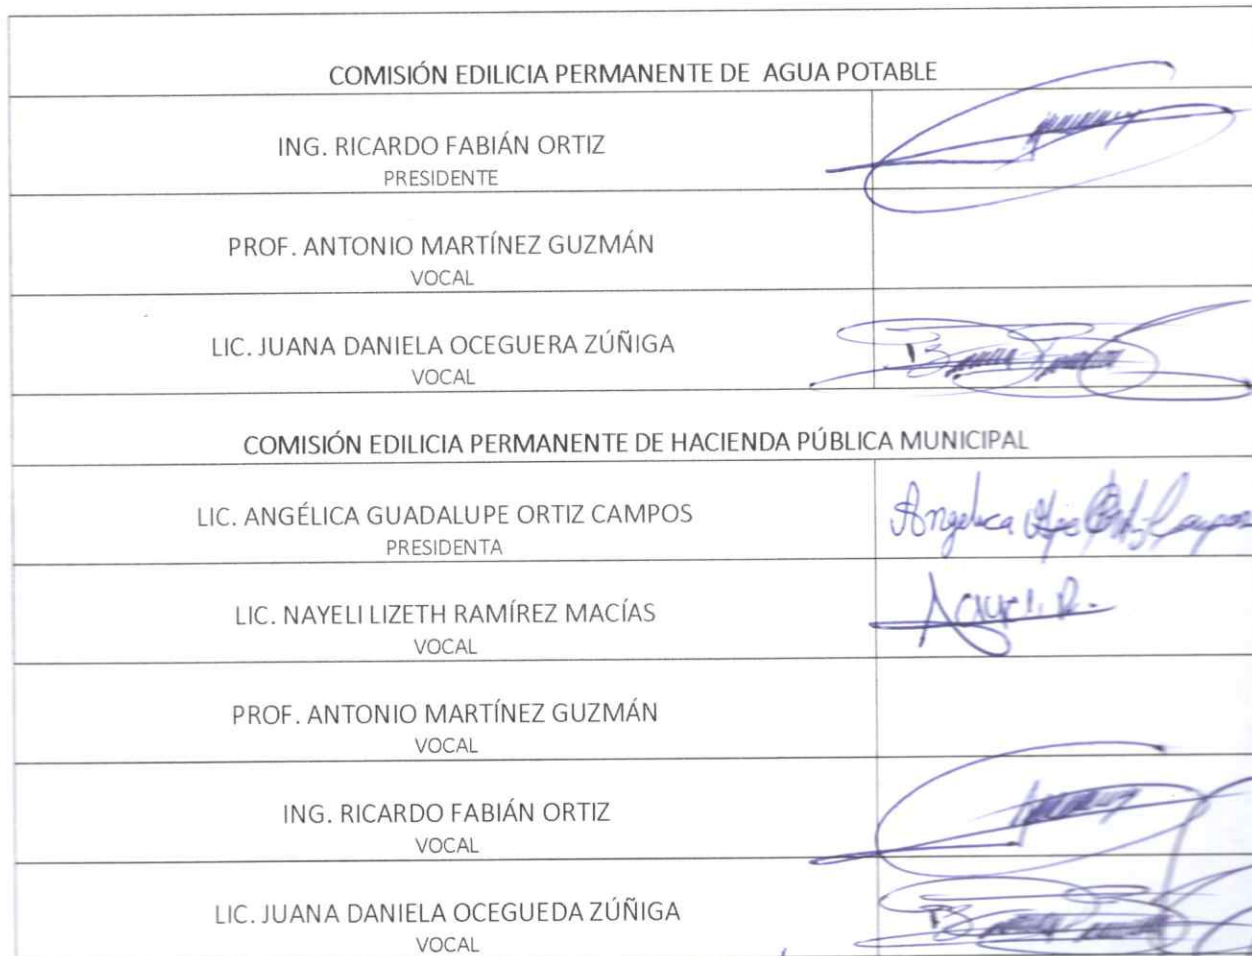 COMISIÓN EDILICIA PERMANENTE DE AGUA POTABLE
ING. RICARDO FABIÁN ORTIZ
PRESIDENTE
PROF. ANTONIO MARTÍNEZ GUZMÁN
VOCAL
LIC. JUANA DANIELA OCEGUERA ZÚÑIGA
VOCAL
COMISIÓN EDILICIA PERMANENTE DE HACIENDA PÚBLICA MUNICIPAL
LIC. ANGÉLICA GUADALUPE ORTIZ CAMPOS
PRESIDENTA
Angelica Gpe Ortiz Campos
LIC. NAYELI LIZETH RAMÍREZ MACÍAS
VOCAL
PROF. ANTONIO MARTÍNEZ GUZMÁN
VOCAL
ING. RICARDO FABIÁN ORTIZ
VOCAL
LIC. JUANA DANIELA OCEGUEDA ZÚÑIGA
VOCAL